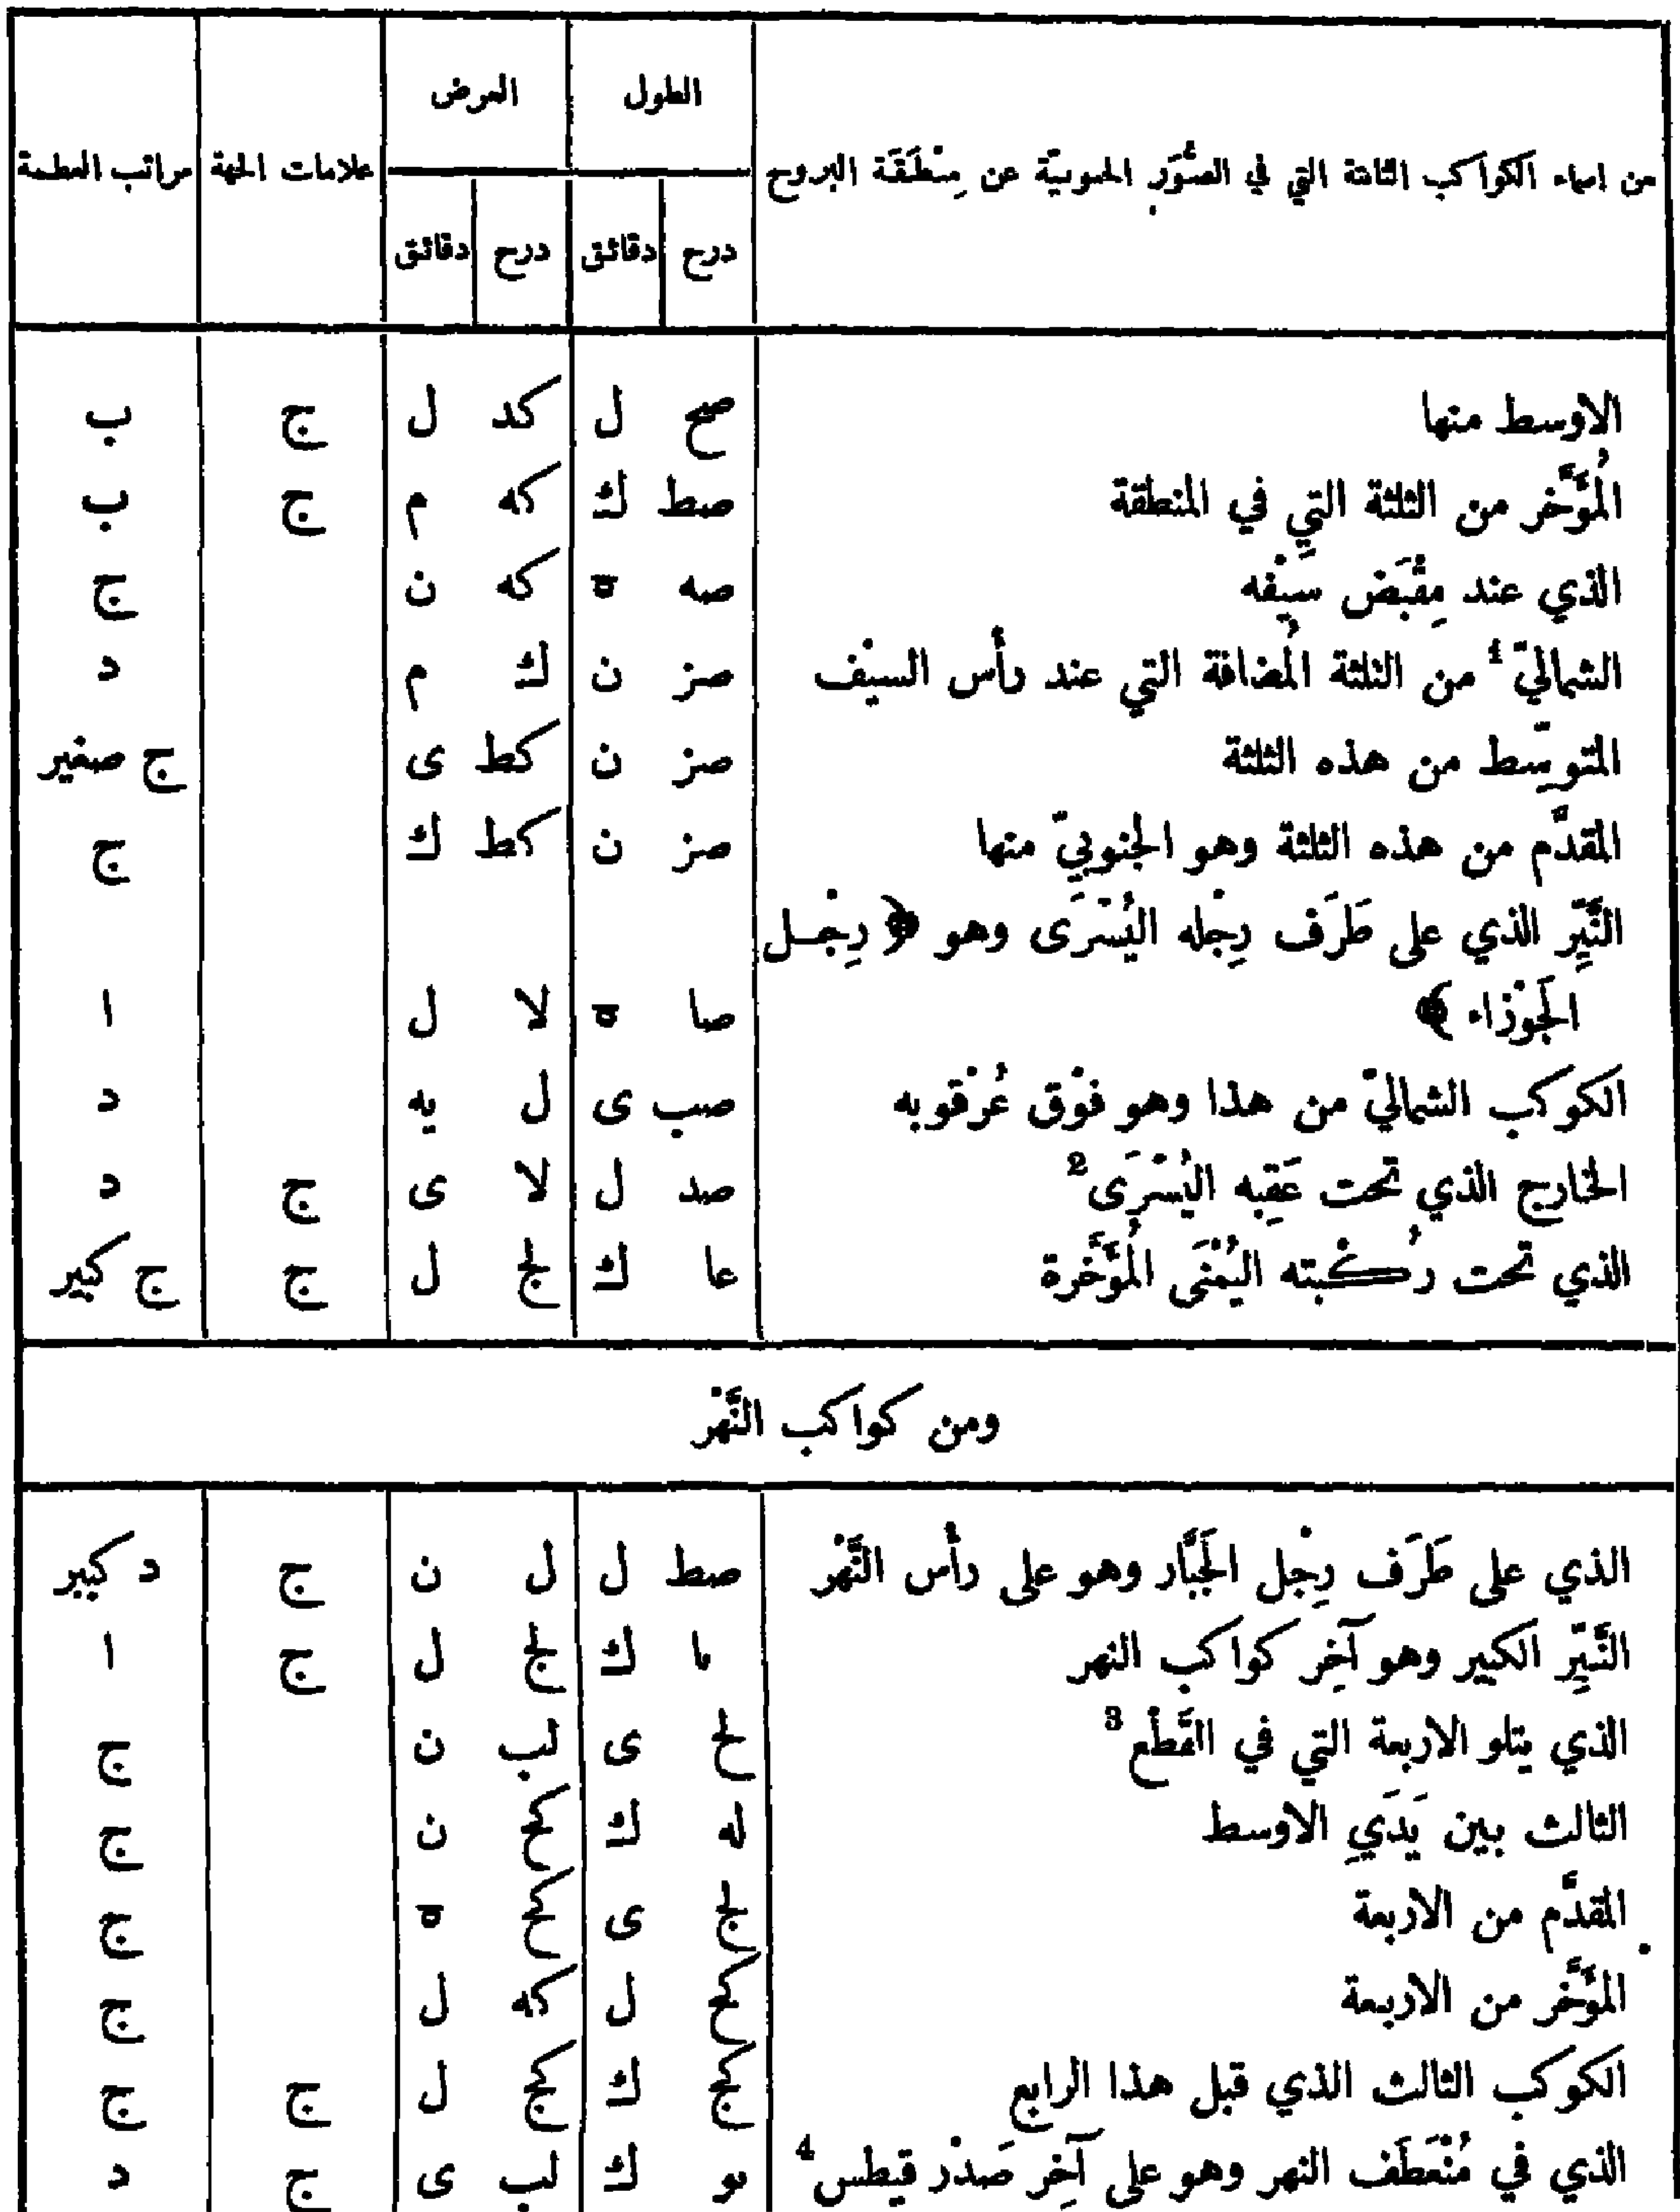 من اسماء الكواكب الثابتة التي في الصُّوَر الجنوبيّة عن مِنْطَقَة البروج | الطول | العرض | علامات الجهة | مراتب العظمة
درج | دقائق | درج | دقائق
الاوسط منها | صح | ل | كد | ل | ج | ب
المُؤَخَّر من الثلثة التي في المنطقة | صط | ك | كه | م | ج | ب
الذي عند مِقْبَض سَيْفه | صه | ه | كه | ن | | ج
الشماليّ¹ من الثلثة المُضافة التي عند رأس السيْف | صز | ن | ك | م | | د
المتوسِّط من هذه الثلثة | صز | ن | كط | ى | | ج صغير
المقدَّم من هذه الثلثة وهو الجنوبيّ منها | صز | ن | كط | ك | | ج
النَّيِّر الذي على طَرَف رِجله اليُسْرَى وهو ﴿ رِجْل
الجَوْزاء ﴾ | صا | ه | لا | ل | | ا
الكوكب الشماليّ من هذا وهو فَوْق عُرْقوبه | صب | ى | ل | يه | | د
الخارج الذي تحت عَقِبه اليُسْرَى² | صد | ل | لا | ى | ج | د
الذي تحت رُكْبته اليُمْنَى المُؤَخَّرة | عا | ك | لج | ل | ج | ج كبير
ومن كواكب النَّهْر
الذي على طَرَف رِجْل الجَبَّار وهو على رأس النَّهْر | صط | ل | ل | ن | ج | د كبير
النَّيِّر الكبير وهو آخِر كواكب النهر | ىا | ك | لج | ل | ج | ا
الذي يتلو الاربعة التي في القَطْع³ | لح | ى | لب | ن | | ج
الثالث بين يَدَيِ الاوسط | له | ك | كح | ن | | ج
المقدَّم من الاربعة | لج | ى | كح | ه | | ج
المُؤَخَّر من الاربعة | كح | ل | كه | ل | | ج
الكوكب الثالث الذي قبل هذا الرابع | كج | ك | كج | ل | ج | ج
الذي في مُنْعَطَف النهر وهو على آخِر صَدْر قيطس⁴ | ىو | ك | لب | ى | ج | د